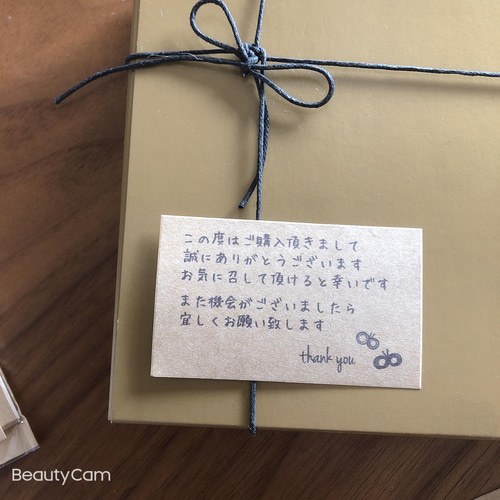 この度はご購入頂きまして
誠にありがとうございます
お気に召して頂けると幸いです
また機会がございましたら
宜しくお願い致します
thank you
BeautyCam